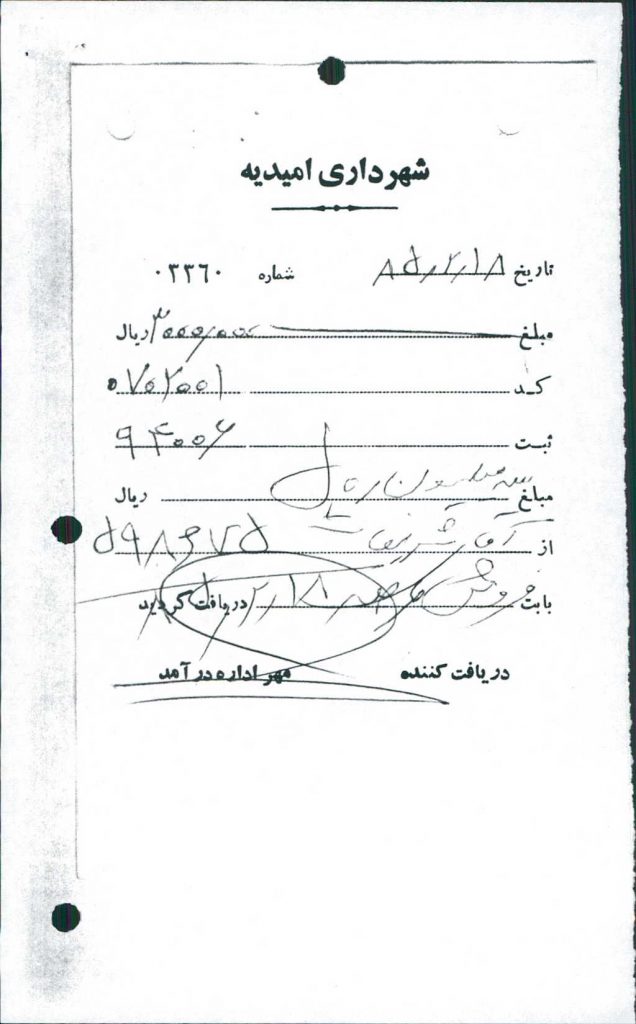 شهرداری امیدیه
تاریخ ۸۵/۲/۱۸ شماره ۰۳۳۶۰
مبلغ ۳۰۰۰/۰۰۰ ریال
کـد ۰۷۰۲۰۰۱
ثبت ۹۴۰۰۶
مبلغ سه میلیون ریال ریال
از آقای ۵۹۸۶۷۵
بابت فروش ۱۸/۲/ دریافت گردید
دریافت کننده مهر اداره درآمد